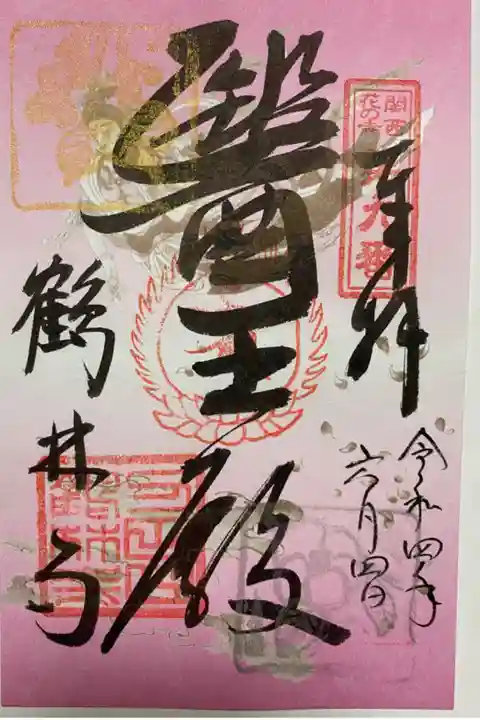 奉拝
令和四年
六月四日
醫王殿
鶴林寺
関西
花の寺
第九番